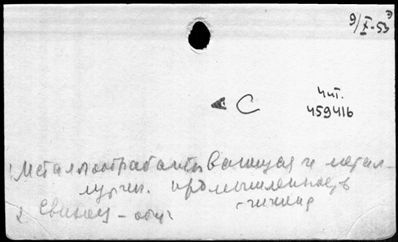 9/X-53
С
чит.
459416
1. Металлообрабатывающая и метал-
лургич. промышленность
2 Свинец - 
гигиена